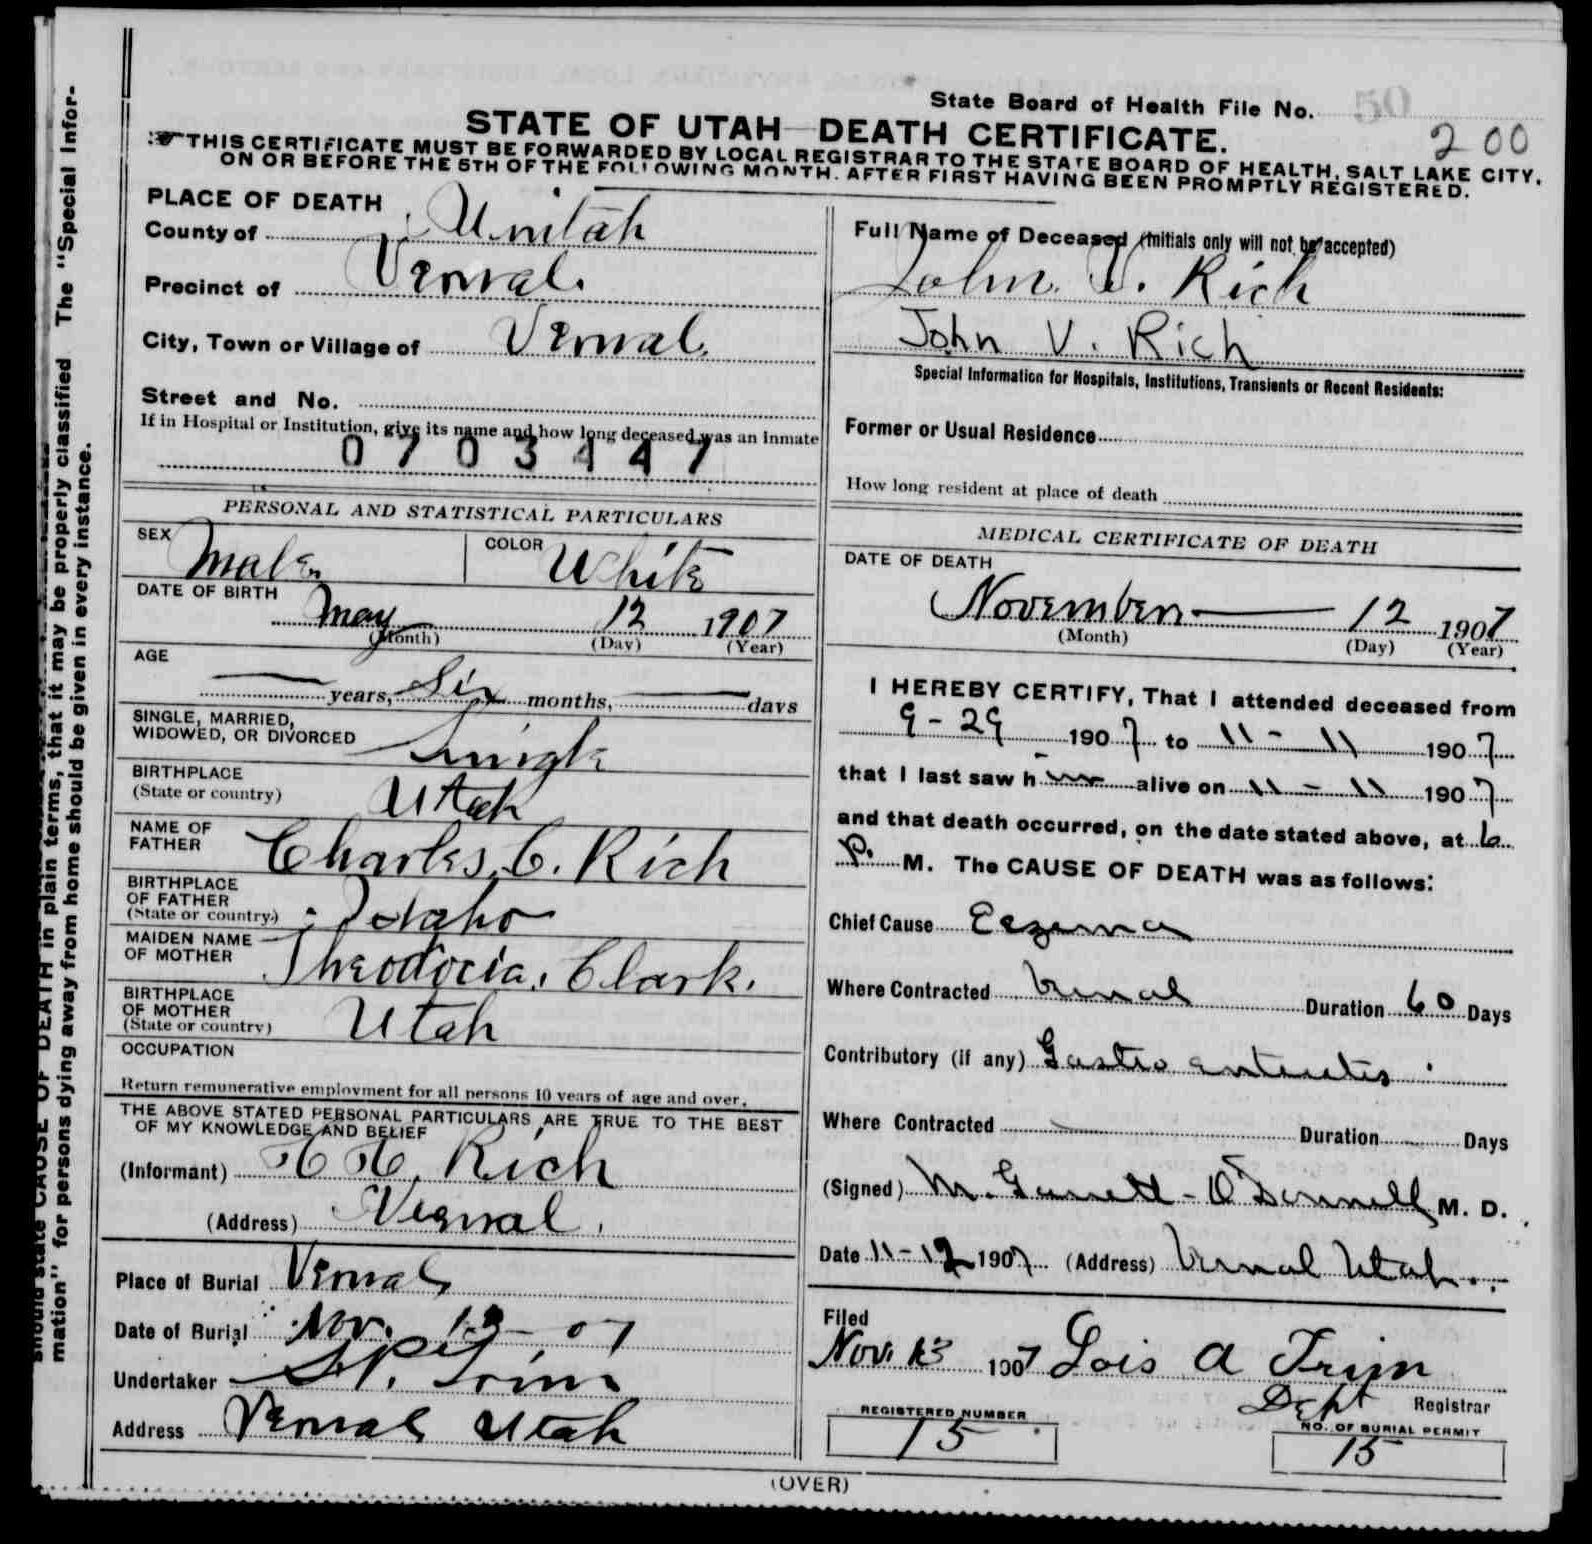 State Board of Health File No. 50
200
STATE OF UTAH—DEATH CERTIFICATE.
THIS CERTIFICATE MUST BE FORWARDED BY LOCAL REGISTRAR TO THE STATE BOARD OF HEALTH, SALT LAKE CITY,
ON OR BEFORE THE 5TH OF THE FOLLOWING MONTH. AFTER FIRST HAVING BEEN PROMPTLY REGISTERED.
PLACE OF DEATH
County of Unitah
Precinct of Vernal.
City, Town or Village of Vernal.
Street and No.
If in Hospital or Institution, give its name and how long deceased was an inmate
0703447
PERSONAL AND STATISTICAL PARTICULARS
SEX Male
COLOR White
DATE OF BIRTH
May 12 1907
(Month) (Day) (Year)
AGE
years, Six months, days
SINGLE, MARRIED,
WIDOWED, OR DIVORCED Single
BIRTHPLACE
(State or country) Utah
NAME OF
FATHER Charles C. Rich
BIRTHPLACE
OF FATHER
(State or country.) Idaho
MAIDEN NAME
OF MOTHER Theodocia. Clark.
BIRTHPLACE
OF MOTHER
(State or country) Utah
OCCUPATION
Return remunerative employment for all persons 10 years of age and over.
THE ABOVE STATED PERSONAL PARTICULARS ARE TRUE TO THE BEST
OF MY KNOWLEDGE AND BELIEF
(Informant) Rich
(Address) Vernal.
Place of Burial Vernal
Date of Burial Nov. 13 - 07
Undertaker
Address Vernal Utah
Full Name of Deceased (Initials only will not be accepted)
John V. Rich
John V. Rich
Special Information for Hospitals, Institutions, Transients or Recent Residents:
Former or Usual Residence
How long resident at place of death
MEDICAL CERTIFICATE OF DEATH
DATE OF DEATH
November 12 1907
(Month) (Day) (Year)
I HEREBY CERTIFY, That I attended deceased from
9 - 29 1907 to 11 - 11 1907
that I last saw him alive on 11 - 11 1907
and that death occurred, on the date stated above, at 6
P. M. The CAUSE OF DEATH was as follows:
Chief Cause Eczema
Where Contracted Vernal Duration 60 Days
Contributory (if any) Gastro enteritis
Where Contracted Duration Days
(Signed) M. Garrett - O'Donnell M. D.
Date 11-12 1907 (Address) Vernal Utah.
Filed
Nov. 13 1907 Lois A Trim
Dept Registrar
REGISTERED NUMBER
15
NO. OF BURIAL PERMIT
15
(OVER)
should state CAUSE OF DEATH in plain terms, that it may be properly classified The "Special Infor-
mation" for persons dying away from home should be given in every instance.